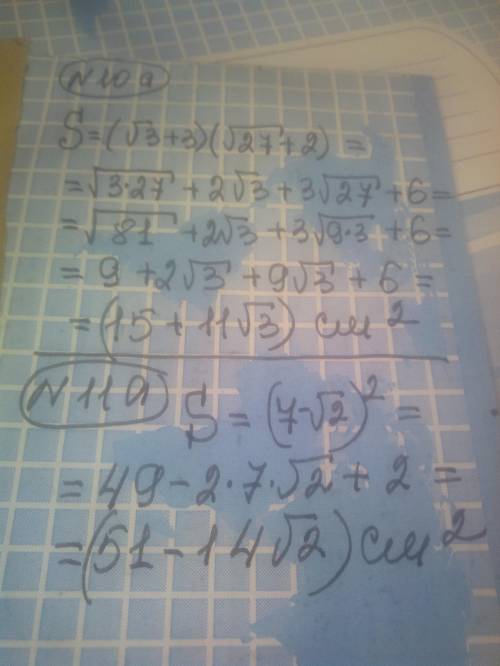 N10a
S=(√3+3)(√27+2)=
=√3·27+2√3+3√27+6=
=√81+2√3+3√9·3+6=
=9+2√3+9√3+6=
=(15+11√3) см²
N11a
S=(7-√2)²=
=49-2·7·√2+2=
=(51-14√2) см²